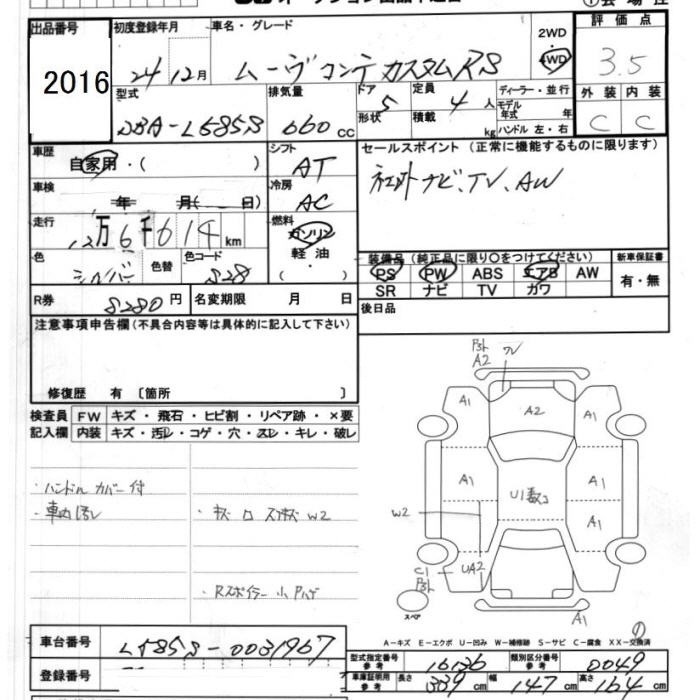 出品番号
2016
初度登録年月
24 12月
車名・グレード
ムーヴ コンテ カスタム RS
2WD
4WD
評価点
3.5
型式
DBA-L585S
排気量
660 cc
ドア
5
形状
定員
4 人
積載
kg
ディーラー・並行
モデル年式 年
ハンドル 左・右
外装 内装
C C
車歴
自家用・( )
シフト
AT
セールスポイント (正常に機能するものに限ります)
ナビ、TV、AW
車検
年 月( 日)
冷房
AC
走行
12万6千614 km
燃料
ガソリン
軽油
( )
色
シルバー
色替
色コード
S28
装備品 (純正品に限り〇をつけてください)
PS PW ABS エアB AW
SR ナビ TV カワ
新車保証書
有・無
R券
8280 円
名変期限 月 日
後日品
注意事項申告欄 (不具合内容等は具体的に記入して下さい)
修復歴 有〔箇所 〕
検査員記入欄
FW キズ・飛石・ヒビ割・リペア跡・×要
内装 キズ・汚レ・コゲ・穴・スレ・キレ・破レ
・ハンドル カバー付
・車内汚レ
W2
・Rスポイラー 小
A2
ワレ
A1
A2
A1
A1
U1数コ
A1
A1
W2
C1
UA2
A1
スペア
A-キズ E-エクボ U-凹み W-補修跡 S-サビ C-腐食 XX-交換済
車台番号
L585S-0031967
登録番号
型式指定番号 参考
16136
類別区分番号 参考
0049
車庫証明用 参考
長さ 339 cm
幅 147 cm
高さ 164 cm